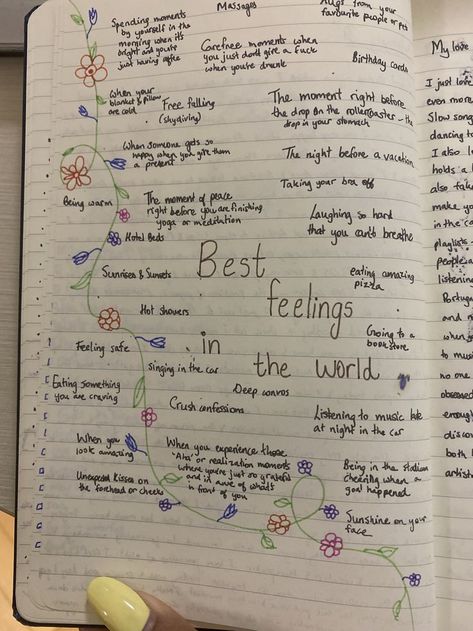 Spending moments
by yourself in the
morning when its
bright and you're
just having coffee
Massages
Hugs from your
favourite people or pets
Carefree moments when
you just don't give a fuck
when you're drunk
Birthday Cards
When your
blanket & pillow
are cold
Free falling
(skydiving)
The moment right before
the drop on the rollercoaster - the
drop in your stomach
When someone gets so
happy when you give them
a present
The night before a vacation
Taking your bra off
Being warm
The moment of peace
right before you are finishing
yoga or meditation
Laughing so hard
that you can't breathe
Hotel Beds
Sunrises & Sunsets
Best
feelings
in
the world
eating amazing
pizza
Hot showers
Going to a
book store
Feeling safe
singing in the car
Deep convos
Eating something
you are craving
Crush confessions
Listening to music late
at night in the car
When you
look amazing
When you experience those
'Aha' or realization moments
where you're just so grateful
and in awe of what's
in front of you
Being in the stadium
cheering when a
goal happened
Unexpected kisses on
the forehead or cheeks
Sunshine on your
face
My love
I just love
even more
Slow song
dancing to
I also l
holds a
also fal
make yo
in the ca
playlists
people a
listening
Portug
and n
when j
to musi
no one
obsessed
enough
disco
both
artis